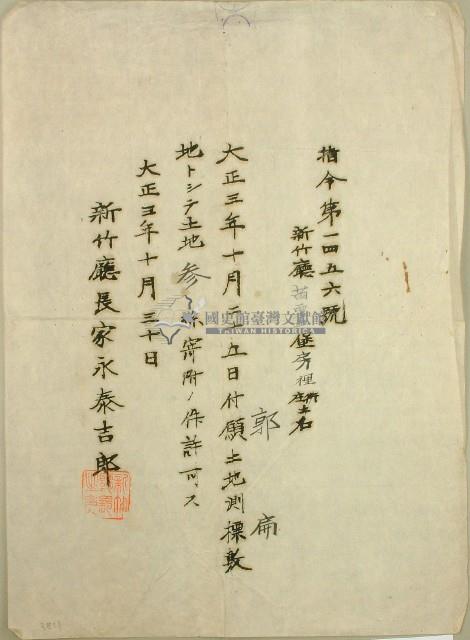 指令第一四五六號
新竹廳苗栗堡房裡庄土名
郭 扁
大正三年十月二十五日付願土地測標敷
地トシテ土地參 寄附ノ件許可ス
大正三年十月三十日
新竹廳長家永泰吉郎
國史館臺灣文獻館
TAIWAN HISTORICA